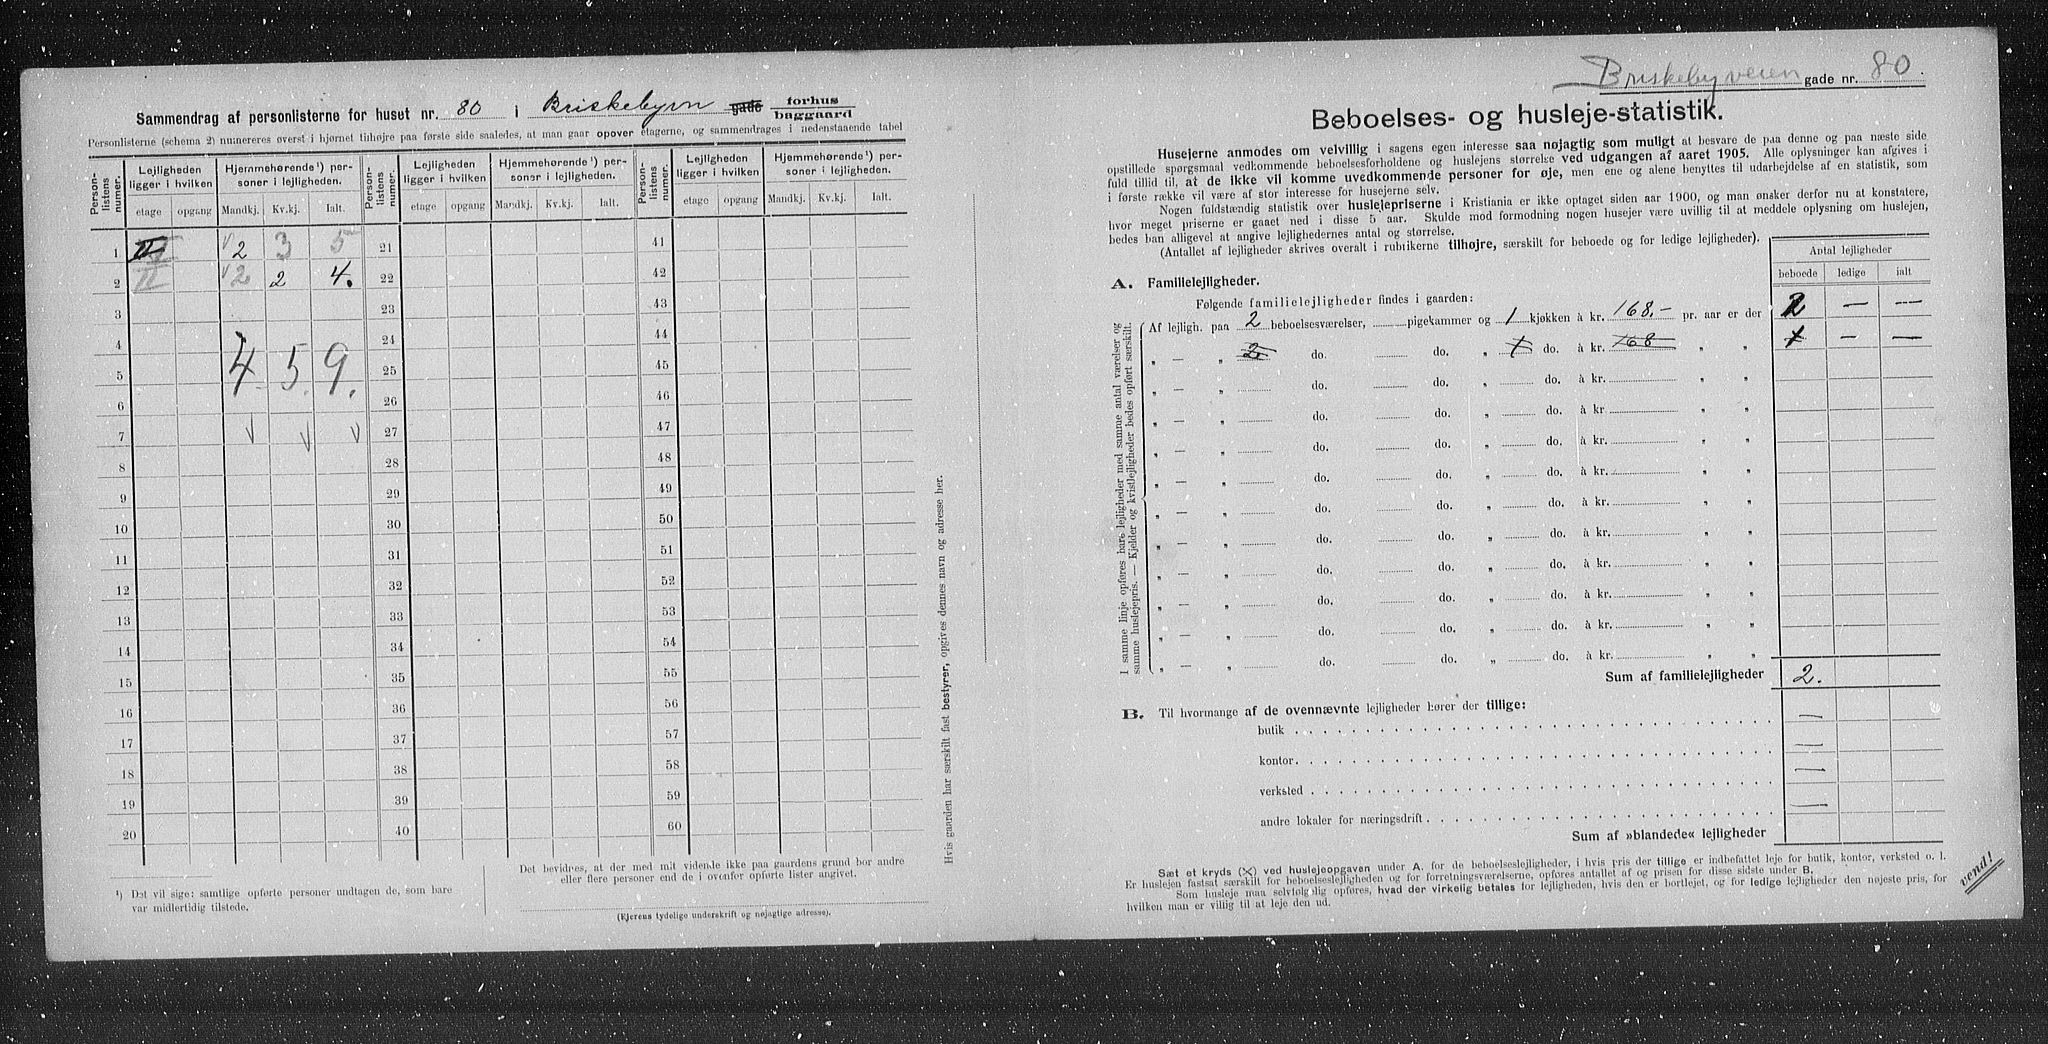 Sammendrag af personlisterne for huset nr. 80 i Briskebyvn gade forhus
baggaard
Personlisterne (schema 2) numereres øverst i hjørnet tilhøjre paa første side saaledes, at man gaar opover etagerne, og sammendrages i nedenstaaende tabel
Person-listens numer.
Lejligheden ligger i hvilken
Hjemmehørende¹) personer i lejligheden.
Person-listens numer.
Lejligheden ligger i hvilken
Hjemmehørende¹) personer i lejligheden.
Person-listens numer.
Lejligheden ligger i hvilken
Hjemmehørende¹) personer i lejligheden.
etage opgang Mandkj. Kv.kj. Ialt. etage opgang Mandkj. Kv.kj. Ialt. etage opgang Mandkj. Kv.kj. Ialt.
1 2 3 5 21 41
2 II 2 2 4. 22 42
3 23 43
4 24 44
4 5. 9.
5 25 45
6 26 46
7 27 47
8 28 48
9 29 49
10 30 50
11 31 51
12 32 52
13 33 53
14 34 54
15 35 55
16 36 56
17 37 57
18 38 58
19 39 59
20 40 60
¹) Det vil sige: samtlige opførte personer undtagen de, som bare
var midlertidig tilstede.
Det bevidnes, at der med mit vidende ikke paa gaardens grund bor andre
eller flere personer end de i ovenfor opførte lister angivet.
(Ejerens tydelige underskrift og nøjagtige adresse).
Hvis gaarden har særskilt fast bestyrer, opgives dennes navn og adresse her.
Briskebyveien gade nr. 80.
Beboelses- og husleje-statistik.
Husejerne anmodes om velvillig i sagens egen interesse saa nøjagtig som muligt at besvare de paa denne og paa næste side
opstillede spørgsmaal vedkommende beboelsesforholdene og huslejens størrelse ved udgangen af aaret 1905. Alle oplysninger kan afgives i
fuld tillid til, at de ikke vil komme uvedkommende personer for øje, men ene og alene benyttes til udarbejdelse af en statistik, som
i første række vil være af stor interesse for husejerne selv.
Nogen fuldstændig statistik over huslejepriserne i Kristiania er ikke optaget siden aar 1900, og man ønsker derfor nu at konstatere,
hvor meget priserne er gaaet ned i disse 5 aar. Skulde mod formodning nogen husejer være uvillig til at meddele oplysning om huslejen,
bedes ban alligevel at angive lejlighedernes antal og størrelse.
(Antallet af lejligheder skrives overalt i rubrikerne tilhøjre, særskilt for beboede og for ledige lejligheder).
Antal lejligheder
beboede ledige ialt
A. Familielejligheder.
Følgende familielejligheder findes i gaarden:
Af lejligh. paa 2 beboelsesværelser, pigekammer og 1 kjøkken à kr. 168.- pr. aar er der 2 — —
„ — „ 2. do. do. „ 1 do. à kr. 168 „ „ 1 — —
„ — „ do. do. „ do. à kr. „ „
„ — „ do. do. „ do. à kr. „ „
„ — „ do. do. „ do. à kr. „ „
„ — „ do. do. „ do. à kr. „ „
„ — „ do. do. „ do. à kr. „ „
„ — „ do. do. „ do. à kr. „ „
„ — „ do. do. „ do. à kr. „ „
„ — „ do. do. „ do. à kr. „ „
„ — „ do. do. „ do. à kr. „ „
„ — „ do. do. „ do. à kr. „ „
I samme linje opføres bare lejligheder med samme antal værelser og
samme huslejepris. — Kjelder og kvistlejligheder bedes opført særskilt.
Sum af familielejligheder 2.
B. Til hvormange af de ovennævnte lejligheder hører der tillige:
butik —
kontor —
verksted —
andre lokaler for næringsdrift —
Sum af »blandede« lejligheder
Sæt et kryds (X) ved huslejeopgaven under A. for de beboelseslejligheder, i hvis pris der tillige er indbefattet leje for butik, kontor, verksted o. l.
Er huslejen fastsat særskilt for beboelseslejligheden og for forretningsværelserne, opføres antallet af og prisen for disse sidste under B.
Som husleje maa selvfølgelig opføres, hvad der virkelig betales for lejligheden, hvis den er bortlejet, og for ledige lejligheder den nøjeste pris, for
hvilken man er villig til at leje den ud.
vend!